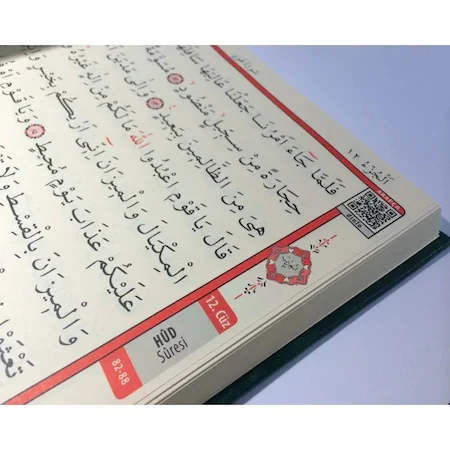 اَلْجُزْءُ ١٢
فَلَمَّا جَاءَ اَمْرُنَا جَعَلْنَا عَالِيَهَا
حِجَارَةً مِنْ سِجّ۪يلٍ مَنْضُودٍ
هِيَ مِنَ الظَّالِم۪ينَ بِبَع۪يدٍ وَاِلٰى
قَالَ يَا قَوْمِ اعْبُدُوا اللّٰهَ مَا لَكُمْ مِنْ اِلٰهٍ
الْمِكْيَالَ وَالْم۪يزَانَ اِنّ۪ٓي اَرٰيكُمْ بِخَيْرٍ
عَلَيْكُمْ عَذَابَ يَوْمٍ مُح۪يطٍ وَيَا قَوْمِ
وَالْم۪يزَانَ بِالْقِسْطِ وَلَا
12. Cüz
HÛD
Sûresi
82-88